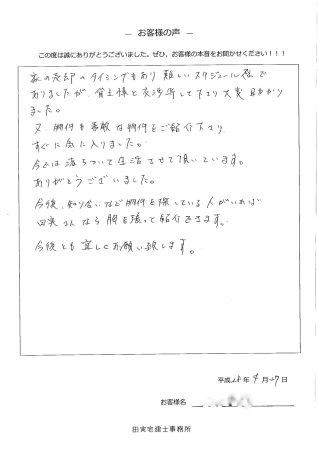 ― お客様の声 ―
この度は誠にありがとうございました。ぜひ、お客様の本音をお聞かせください！！！
家の売却のタイミングもあり難しいスケジュール等で
ありましたが、買主様と交渉等して下さり大変助かり
ました。
又、物件も素敵な物件をご紹介下さり
すぐに気に入りました。
今では落ちついて生活させて頂いています。
ありがとうございました。
今後、知り合いなど物件を探している人がいれば
田実さんなら胸を張って紹介できます。
今後とも宜しくお願い致します。
平成28年9月27日
お客様名
田実宅建士事務所